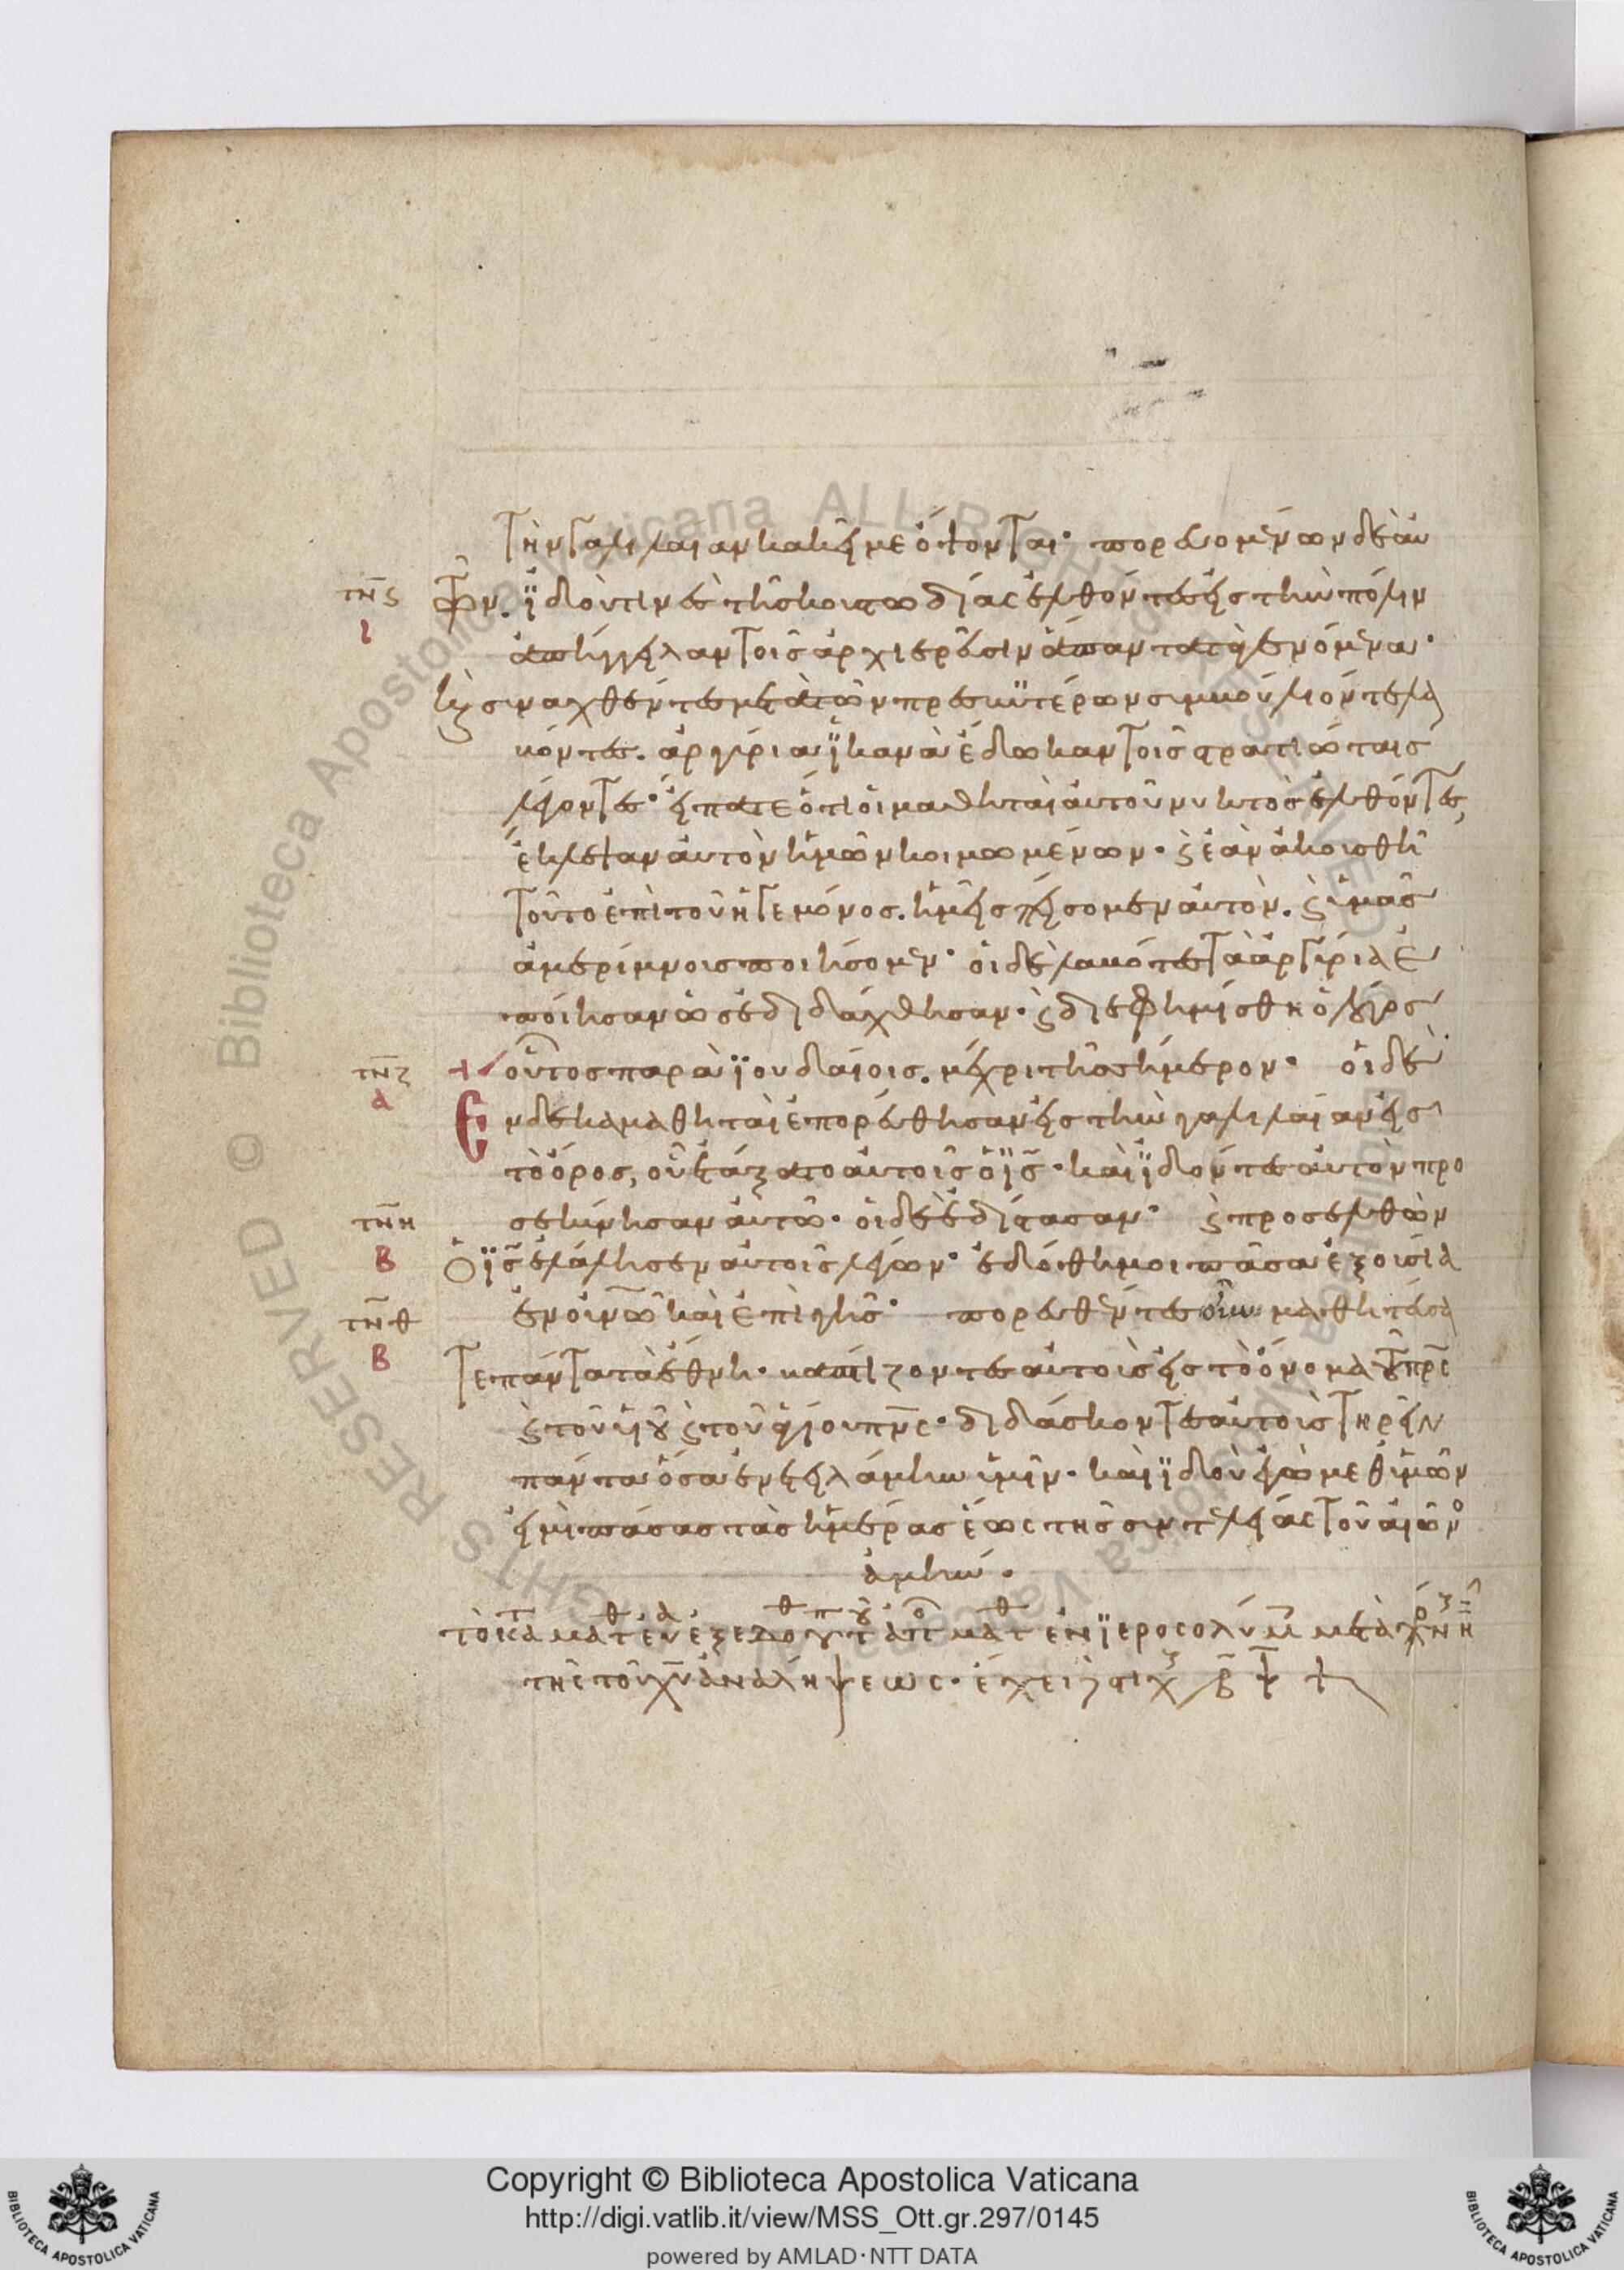 τὴν γαλιλαίαν κἀκεῖ με ὄψονται· πορευομένων δὲ αὐ
τνς
ι
τῶν. ἰδού τινες τῆς κουστωδίας ἐλθόντες εἰς τὴν πόλιν
ἀπήγγειλαν τοῖς ἀρχιερεῦσιν ἅπαντα τὰ γενόμενα·
καὶ συναχθέντες μετὰ τῶν πρεσβυτέρων συμβούλιόν τε λα
βόντες. ἀργύρια ἱκανὰ ἔδωκαν τοῖς στρατιώταις
λέγοντες· εἴπατε ὅτι οἱ μαθηταὶ αὐτοῦ νυκτὸς ἐλθόντες,
ἔκλεψαν αὐτὸν ἡμῶν κοιμωμένων· ϗ ἐὰν ἀκουσθῆ
τοῦτο ἐπὶ τοῦ ἡγεμόνος. ἡμεῖς πείσομεν αὐτόν. ϗ ὑμᾶς
ἀμερίμνους ποιήσομεν· οἱ δὲ λαβόντες τὰ ἀργύρια ἐ
ποίησαν ὡς ἐδιδάχθησαν· ϗ διεφημίσθη ὁ λόγος
τνζ
α
οὗτος παρὰ ἰουδαίοις. μέχρι τῆς σήμερον· οἱ δὲ
ἕνδεκα μαθηταὶ ἐπορεύθησαν εἰς τὴν γαλιλαίαν εἰς
τὸ ὄρος, οὗ ἐτάξατο αὐτοῖς ὁ ις· καὶ ἰδόντες αὐτὸν προ
τνη
β
σεκύνησαν αὐτῶ· οἱ δὲ ἐδίστασαν· ϗ προσελθὼν
ὁ ις ἐλάλησεν αὐτοῖς λέγων· ἐδόθη μοι πᾶσα ἐξουσία
τνθ
β
ἐν οὐνῶ καὶ ἐπὶ γῆς· πορευθέντες οὖν μαθητεύσα
τε πάντα τὰ ἔθνη· βαπτίζοντες αὐτοὺς εἰς τὸ ὄνομα τοῦ πρς
ϗ τοῦ υἱοῦ ϗ τοῦ ἁγίου πνς· διδάσκοντες αὐτοὺς τηρεῖν
πάντα ὅσα ἐνετειλάμην ὑμῖν· καὶ ἰδοὺ ἐγὼ μεθ ὑμῶν
εἰμι πάσας τὰς ἡμέρας ἕως τῆς συντελείας τοῦ αἰῶνο
ἀμήν·
τὸ κατὰ ματθ εὐα ἐξεδόθη ὑπ αὐτοῦ ἐν ἱεροσολύμ μετὰ χρόν η
τῆς τοῦ χυ ἀναλήψεως· ἔχει στιχ βχ
Copyright © Biblioteca Apostolica Vaticana
http://digi.vatlib.it/view/MSS_Ott.gr.297/0145
powered by AMLAD·NTT DATA
BIBLIOTECA APOSTOLICA VATICANA
BIBLIOTECA APOSTOLICA VATICANA
© Biblioteca Apostolica Vaticana ALL RIGHTS RESERVED